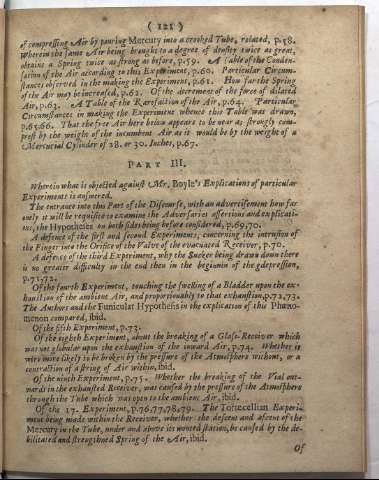 ( 121 )
of compressing Air by pouring Mercury into a crooked Tube, related, p.58.
Wherein the same Air being brought to a degree of density twice as great,
obtains a Spring twice as strong as before, p.59. A Table of the Conden-
sation of the Air according to this Experiment, p.60. Particular Circum-
stances observed in the making the Experiment, p.61. How far the Spring
of the Air may be increased, p.62. Of the decrement of the force of dilated
Air, p.63. A Table of the Rarefaction of the Air, p.64. Particular
Circumstances in making the Experiment whence this Table was drawn,
p.65,66. That the free Air here below appears to be near as strongly com-
prest by the weight of the incumbent Air as it would be by the weight of a
Mercurial Cylinder of 28. or 30. Inches, p.67.
PART III.
Wherein what is objected against Mr. Boyle's Explications of particular
Experiments is answered.
The entrance into this Part of the Discourse, with an advertisement how far
onely it will be requisite to examine the Adversaries assertions and explicati-
ons, the Hypotheses on both sides being before considered, p.69,70.
A defence of the first and second Experiments, concerning the intrusion of
the Finger into the Orifice of the Valve of the evacuated Receiver, p.70.
A defence of the third Experiment, why the Sucker being drawn down there
is no greater difficulty in the end then in the beginnin of the gdepression,
p.71,72.
Of the fourth Experiment, touching the swelling of a Bladder upon the ex-
haustion of the ambient Air, and proportionably to that exhaustion, p.72,73.
The Authors and the Funicular Hypothesis in the explication of this Phæno-
menon compared, ibid.
Of the fifth Experiment, p.73.
Of the eighth Experiment, about the breaking of a Glass-Receiver which
was not globular upon the exhaustion of the inward Air, p.74. Whether it
were more likely to be broken by the pressure of the Atmosphere without, or a
contraction of a string of Air within, ibid.
Of the ninth Experiment, p.75. Whether the breaking of the Vial out-
wards in the exhausted Receiver, was caused by the pressure of the Atmosphere
through the Tube which was open to the ambient Air, ibid.
Of the 17. Experiment, p.76,77,78,79. The Torrecellian Experi-
ment being made within the Receiver, whether the descent and ascent of the
Mercury in the Tube, under and above its wonted station, be caused by the de-
bilitated and strengthned Spring of the Air, ibid.
Of